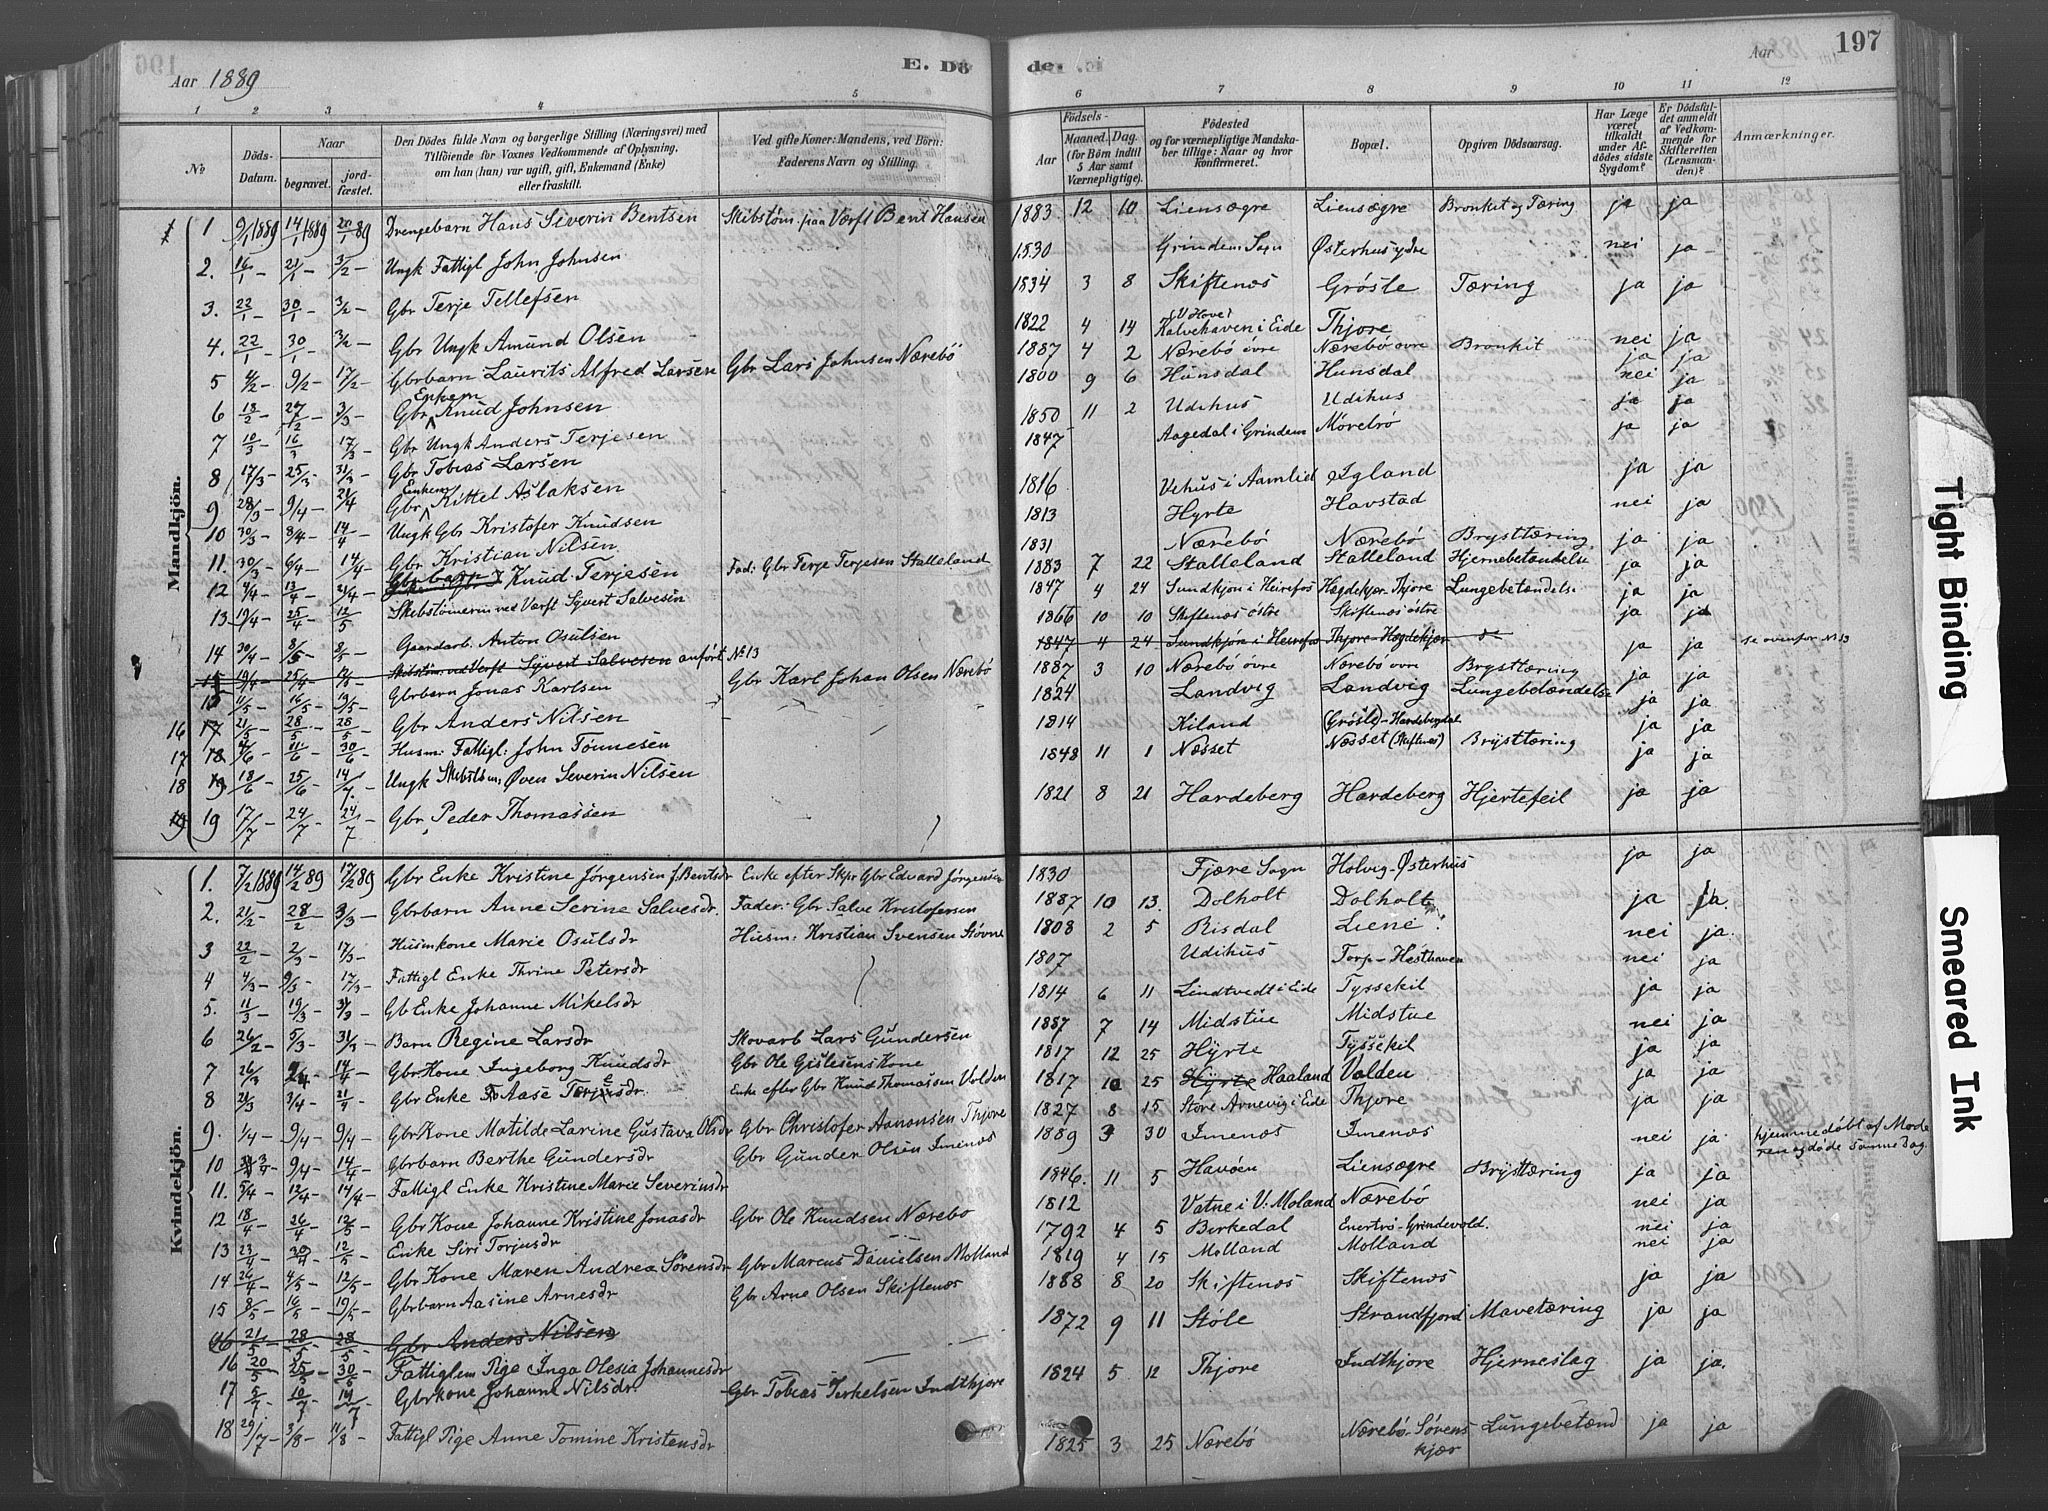 196
Aar 1889
E. Dö
de.
Aar
197
1 2 3 4 5 6 7 8 9 10 11 12
No
Döds-
Datum.
Naar
begravet.
jord-
fæstet.
Den Dödes fulde Navn og borgerlige Stilling (Næringsvei) med
Tilföiende for Voxnes Vedkommende af Oplysning,
om han (hun) var ugift, gift, Enkemand (Enke)
eller fraskilt.
Ved gifte Koner: Mandens, ved Börn:
Faderens Navn og Stilling.
Födsels-
Aar
Maaned. Dag.
(for Börn indtil
5 Aar samt
Værnepligtige).
Födested
og for værnepligtige Mandska-
ber tillige: Naar og hvor
konfirmeret.
Bopæl.
Opgiven Dödsaarsag.
Har Læge
været
tilkaldt
under Af-
dödes sidste
Sygdom?
Er Dödsfal-
det anmeldt
af Vedkom-
mende for
Skifteretten
(Lensman-
den)?
Anmærkninger.
Mandkjön.
1 9/1 1889 14/1 1889 20/1 89 Drengebarn Hans Severin Bentsen Skibstøm. paa Værft Bent Hansen 1883 12 10 Liensøgre Liensøgre Bronkit og Tæring ja ja
2. 16/1 - 21/1 - 3/2 - Ungk Fattigl John Johnsen 1830 Grindem Sogn Østerhus ydre nei ja
3. 22/1 - 30/1 - 3/2 - Gbr Terje Tellefsen 1834 3 8 Skiftenøs Grøsle Tæring ja ja
4. 22/1 - 30/1 - 3/2 - Gbr Ungk Amund Olsen 1822 4 14 Kalvehaven i Eide Thjore nei ja
5 4/2 - 9/2 - 17/2 - Gbrbarn Laurits Alfred Larsen Gbr Lars Johnsen Nærebö 1887 4 2 Nærebö övre Nærebö ovre Bronkit ja ja
6 13/2 - 27/2 - 3/3 Gbr Enkem Knud Johnsen 1800 9 6 Hunsdal Hunsdal nei ja
7 10/3 - 16/3 17/3 Gbr Ungk Anders Terjesen 1850 11 2 Udihus Udihus ja ja
8 17/3 - 25/3 31/3 Gbr Tobias Larsen 1847 Aagedal i Grindem Mörebrö ja ja
9 28/3 - 9/4 - 21/4 Gbr Enkem Kittel Aslaksen 1816 Vehus i Aamlid Igland ja ja
10 30/3 - 8/4 - 14/4 Ungk Gbr Kristofer Knudsen 1813 Hyrte Havstad nei ja
11. 30/3 - 6/4 - 14/4 - Gbr Kristian Nilsen 1831 Nærebö Nærebö Brysttæring ja ja
12 4/4 - 13/4 - 21/4 - Gbrbarn Knud Terjesen Fad: Gbr Terje Terjesen Stalleland 1883 7 22 Stalleland Stalleland Hjernebetændelse ja ja
13 19/4 - 25/4 - 12/5 Skibstömerm ved Værft Syvert Salvesen 1847 4 24 Sundkjön i Heirefos Hægdekjer Thjore Lungebetændelse ja ja
14 30/4 - 8/5 - Gaardarb. Anton Osulsen 1866 10 10 Skiftenøs östre Skiftenøs östre ja ja
15 19/4 - 25/4 - Skibstöm. ved Værft Syvert Salvesen anfört No 13 1847 4 24 Sundkjön i Heirefos Thjore Hægdekjær ja ja se ovenfor No 13
15 4/5 - 16/5 - 19/5 - Gbrbarn Jonas Karlsen Gbr Karl Johan Olsen Nærebö 1887 3 10 Nærebö övre Nærebö ovre Brysttæring ja ja
16 17 21/5 - 28/5 - 28/5 - Gbr Anders Nilsen 1824 Landvig Landvig Lungebetændelse ja ja
17 18 4/6 11/6 - 30/6 - Husm: Fattigl: John Tönnesen 1814 Kiland (Grösle) - Hardebergdal ja ja
18 19 18/6 - 25/6 - 14/7 - Ungk Skibstöm: Öven Severin Nilsen 1848 11 1 Næsset Næsset (Skiftenøs) Brysttæring ja ja
19 19 17/7 - 24/7 - 24/7 - Gbr Peder Thomassen 1821 8 21 Hardeberg Hardeberg Hjertefeil ja ja
Kvindekjön.
1. 7/2 1889 14/2 89 17/2 89 Gbr Enke Kristine Jörgensen f. Bentsdr Enke efter Skpr Gbr Edvard Jörgensen 1830 Fjære Sogn Holvig-Østerhus ja ja
2. 21/2 - 28/2 - 3/3 - Gbrbarn Anne Serine Salvesdr. Fader: Gbr Salve Kristofersen 1887 10 13 Dolholt Dolholt ja ja.
3 22/2 - 2/3 - 17/3 - Husmkone Marie Osulsdr Husm: Kristian Svensen Stövne 1808 2 5 Risdal Liene nei ja.
4 4/3 - 9/3 - 17/3 - Fattigl Enke Thrine Petersdr 1807 Udihus Torp-Hesthaven nei ja
5. 11/3 - 19/3 - 31/3 Gb Enke Johanne Mikelsdr 1814 6 11 Lindtvedt i Eide Tyssekil ja ja
6 26/2 - 5/3 - 31/3 - Barn Regine Larsdr Skovarb Lars Gundersen 1887 7 14 Midstue Midstue nei ja
7 26/3 2/4 - 14/4 - Gbr Kone Ingeborg Knudsdr Gbr Ole Gislesens Kone 1817 12 25 Hÿrte Tyssekil ja ja
8 21/3 3/4 - 21/4 - Gbr Enke Aase Terjesdr. Enke efter Gbr Knud Thomassen Valden 1817 10 25 Hyrte Haaland Valden ja ja
9. 1/4 - 9/4 - 9/4 - Gbr Kone Matilde Larine Gustava Olsdr Gbr Christofer Aanonsen Thjore 1827 8 15 Store Arnevig i Eide Thjore ja ja
10 3/4 - 9/4 - 14/4 - Gbrbarn Berthe Gundersdr Gbr Gunder Olsen Imenæs 1889 3 30 Imenæs Imenæs nei ja hjemmedöbt af Mode
ren og döde samme Dag.
11. 5/4 - 12/4 - 14/4 - Fattigl Enke Kristine Marie Severinsdr 1846. 11 5 Havöen Liensøgre Brÿsttæring ja ja
12 18/4 - 26/4 - 12/5 - Gbr Kone Johanne Kristine Jonasdr Gbr Ole Knudsen Nærebö 1812 Vatne i V: Moland Nærebö nei ja
13 23/4 - 30/4 - 12/5 - Enke Siri Torjusdr 1792 4 5 Birkedal Enertrö-Grindevold. nei ja
14 26/4 - 4/5 - 12/5 - Gbr Kone Maren Andrea Sörensdr Gbr Marcus Danielsen Molland 1819 4 15 Molland Molland nei ja
15 8/5 - 16/5 - 19/5 - Gbrbarn Aasine Arnesdr Gbr Arne Olsen Skiftenæs 1888 8 20 Skiftenæs Skiftenæs ja ja
16 21/5 - 28/5 - 28/5 - Gbr Anders Nilsen
16 20/5 - 25/5 - 30/5 - Fattiglem Pige Inga Olesia Johannesdr 1872 9 11 Stöle Strandfjord Mavetæring ja ja
17 5/7 - 10/7 - 19/7 Gbrkone Johanne Nilsdr. Gbr Tobias Terkelsen Indthjore 1824 5 12 Thjore Indthjore Hjerneslag ja ja.
18 29/7 - 3/8 - 11/8 Fattigl Pige Anne Tomine Kristensdr 1825 3 25 Nærebö Nærebö-Sörens
kjær Lungebetænd ja ja
Tight Binding
Smeared Ink